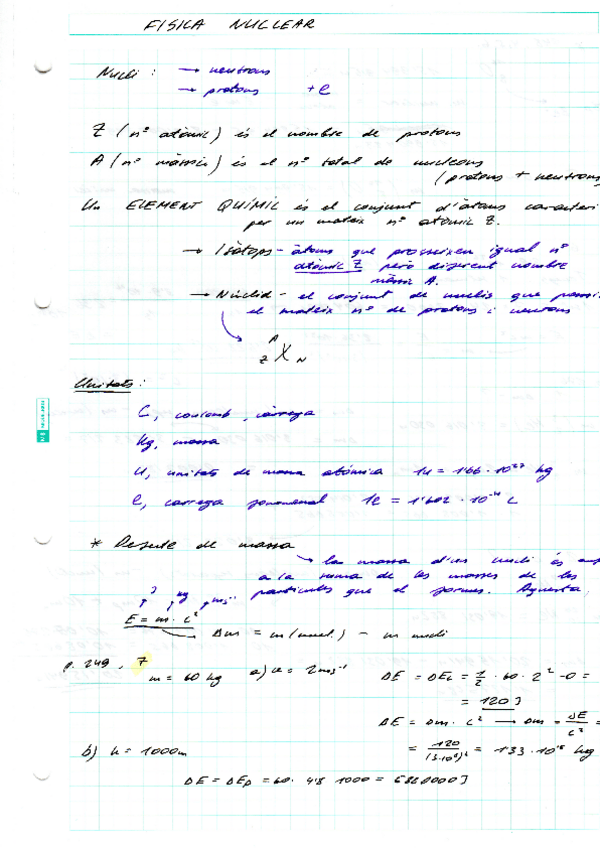 FISICA NUCLEAR
Nucli : → neutrons
→ protons +e
Z (nº atòmic) és el nombre de protons
A (nº màssic) és el nº total de nucleons
(protons + neutrons
Un ELEMENT QUÍMIC és el conjunt d'àtoms caracteri
per un mateix nº atòmic Z.
→ Isòtops - àtoms que prosseixen igual nº
atòmic Z però diferent nombre
màssic A.
→ Núclid - el conjunt de nuclis que
el mateix nº de protons i neutrons
A
Z X N
Unitats :
C, coulomb, càrrega
Kg, massa
U, unitats de massa atòmica 1u = 1'66 · 10²⁷ kg
e, càrrega 1e = 1'602 · 10 C
* Defecte de massa
→ la massa d'un nucli és
a la suma de les masses de les
partícules que el formes. Aquesta,
J kg ms⁻¹
E = m · c²
Δm = m(nucl.) - m nucli
p. 249, 7
m = 60 kg a) v = 2ms⁻¹ ΔE = ΔEc = 1/2 · 60 · 2² - 0 =
= 120 J
ΔE = Δm · c² → Δm = ΔE/c² =
b) h = 1000m = 120/(3·10⁸)² = 1'33 · 10⁻¹⁵ kg
ΔE = ΔEp = 60 · 9'8 · 1000 = 588000 J